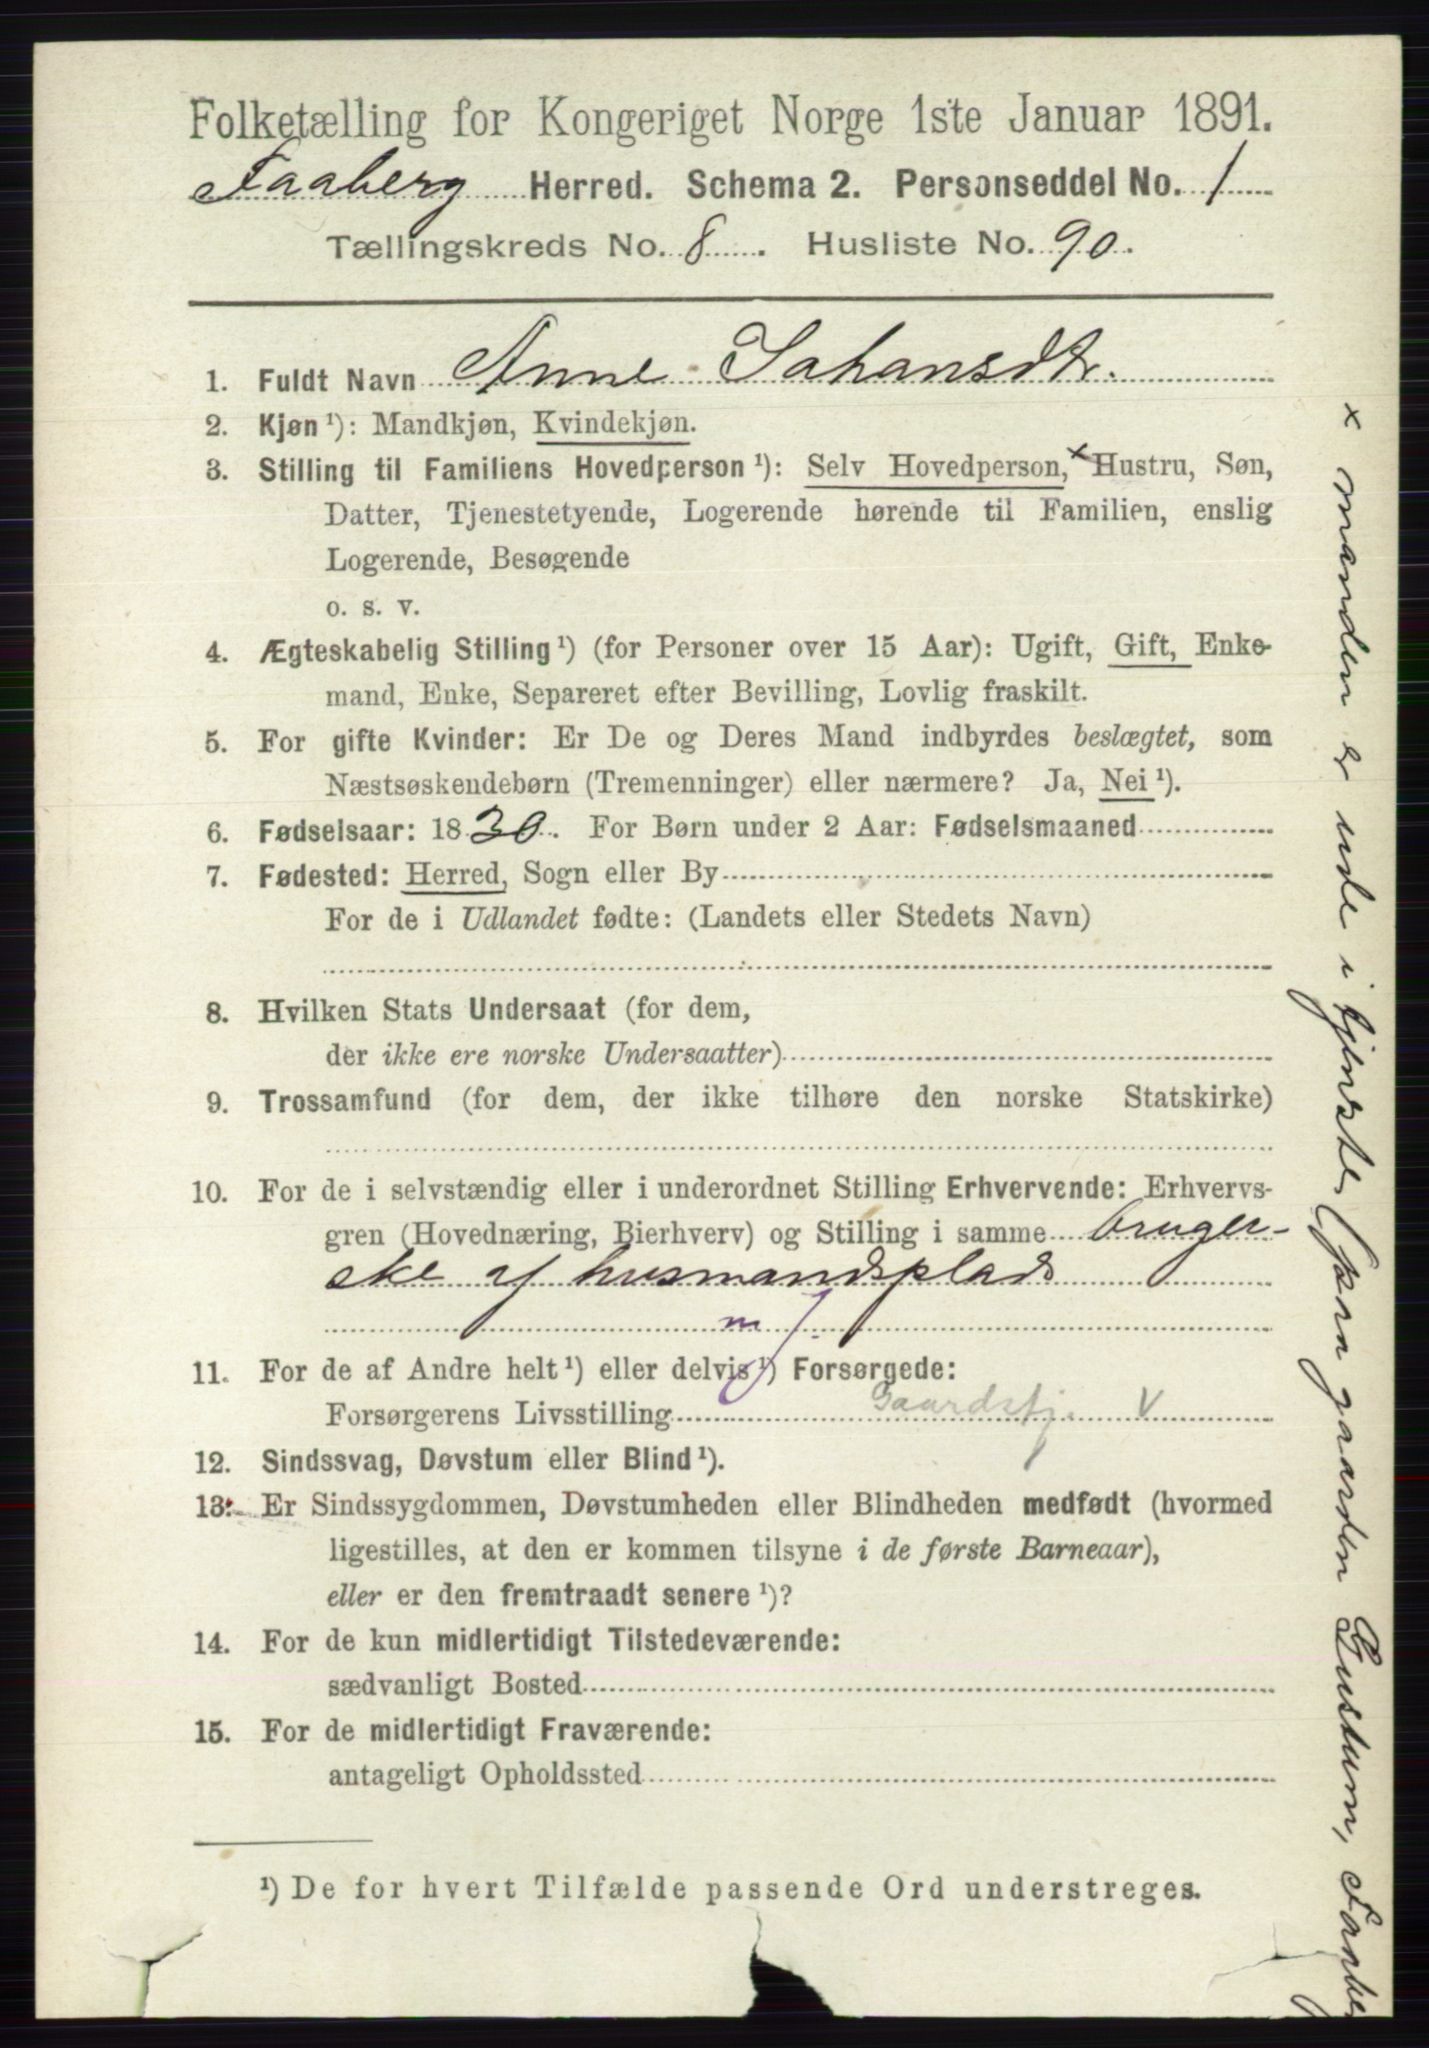 Folketælling for Kongeriget Norge 1ste Januar 1891.
Faaberg Herred. Schema 2. Personseddel No. 1
Tællingskreds No. 8. Husliste No. 90.
1. Fuldt Navn Anne Johansdtr.
2. Kjøn ¹): Mandkjøn, Kvindekjøn.
3. Stilling til Familiens Hovedperson ¹): Selv Hovedperson, x Hustru, Søn,
Datter, Tjenestetyende, Logerende hørende til Familien, enslig
Logerende, Besøgende
o. s. v.
4. Ægteskabelig Stilling ¹) (for Personer over 15 Aar): Ugift, Gift, Enke-
mand, Enke, Separeret efter Bevilling, Lovlig fraskilt.
5. For gifte Kvinder: Er De og Deres Mand indbyrdes beslægtet, som
Næstsøskendebørn (Tremenninger) eller nærmere? Ja, Nei ¹).
6. Fødselsaar: 1830. For Børn under 2 Aar: Fødselsmaaned
7. Fødested: Herred, Sogn eller By
For de i Udlandet fødte: (Landets eller Stedets Navn)
8. Hvilken Stats Undersaat (for dem,
der ikke ere norske Undersaatter)
9. Trossamfund (for dem, der ikke tilhøre den norske Statskirke)
10. For de i selvstændig eller i underordnet Stilling Erhvervende: Erhvervs-
gren (Hovednæring, Bierhverv) og Stilling i samme bruger-
ske af husmandsplads
m j.
11. For de af Andre helt ¹) eller delvis ¹) Forsørgede:
Forsørgerens Livsstilling Gaardstj. V
12. Sindssvag, Døvstum eller Blind ¹).
13. Er Sindssygdommen, Døvstumheden eller Blindheden medfødt (hvormed
ligestilles, at den er kommen tilsyne i de første Barneaar),
eller er den fremtraadt senere ¹)?
14. For de kun midlertidigt Tilstedeværende:
sædvanligt Bosted
15. For de midlertidigt Fraværende:
antageligt Opholdssted
¹) De for hvert Tilfælde passende Ord understreges.
x manden er ude i tjeneste, (paa gaarden Sustum, Faaberg